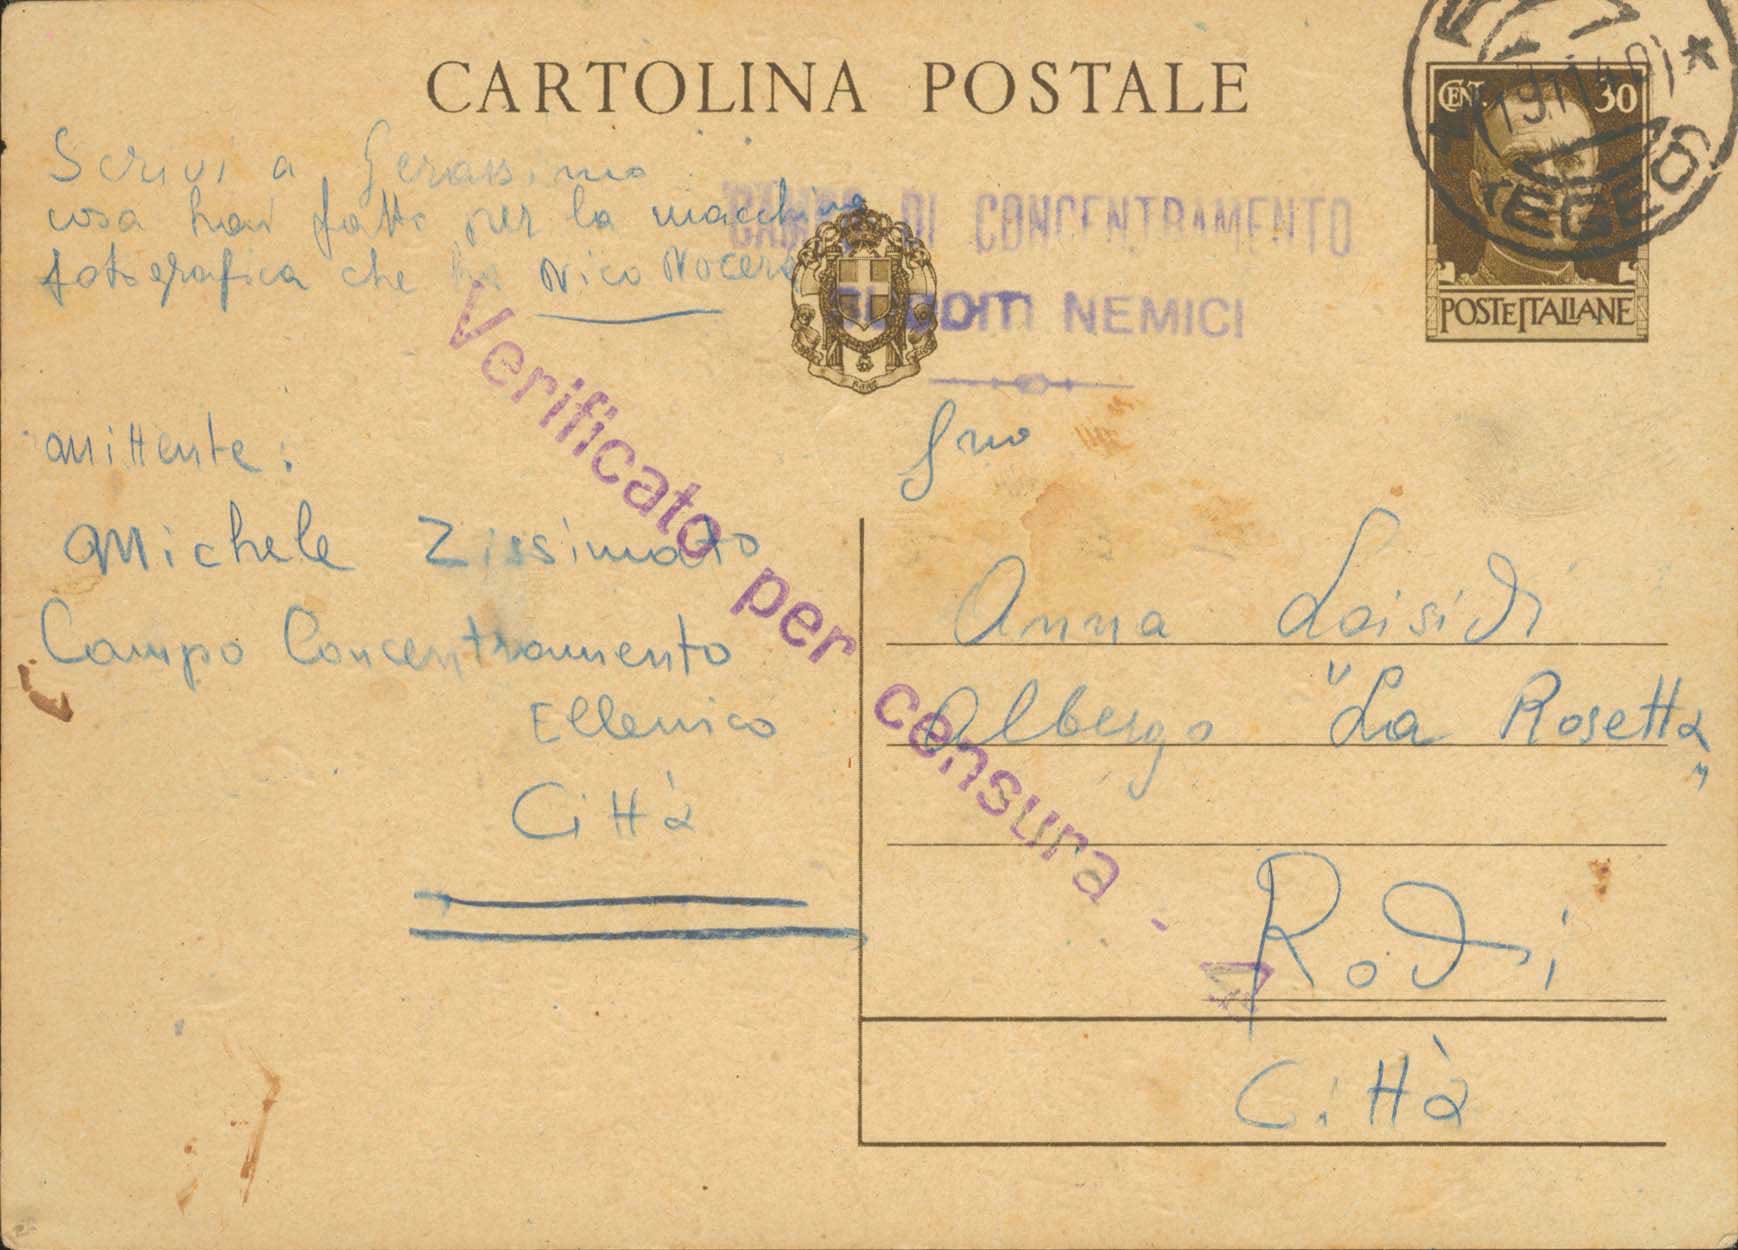 CARTOLINA POSTALE
CENT. 30
POSTE ITALIANE
EGEO
Scrivi a Gerassimo
cosa hai fatto per la macchina
fotografica che ha Nico Nocera
CAMPO DI CONCENTRAMENTO
SUDDITI NEMICI
Verificato per censura - 4
Mittente:
Michele Zissimato
Campo Concentramento
Ellenico
Città
Anna Loisidi
Albergo "La Rosetta"
Rodi
Città